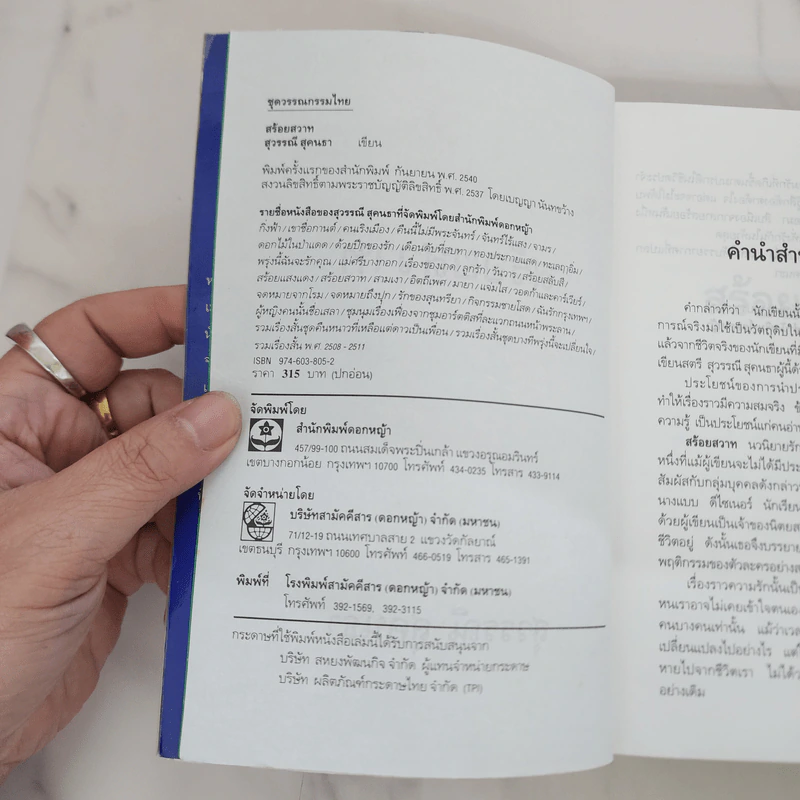 ชุดวรรณกรรมไทย
สร้อยสวาท
สุวรรณี สุคนธา เขียน
พิมพ์ครั้งแรกของสำนักพิมพ์ กันยายน พ.ศ. 2540
สงวนลิขสิทธิ์ตามพระราชบัญญัติลิขสิทธิ์ พ.ศ. 2537 โดยเบญญา นันทขว้าง
รายชื่อหนังสือของสุวรรณี สุคนธาที่จัดพิมพ์โดยสำนักพิมพ์ดอกหญ้า
กิ่งฟ้า / เขาชื่อกานต์ / คนเริงเมือง / คืนนี้ไม่มีพระจันทร์ / จันทร์ไร้แสง / จามร /
ดอกไม้ในป่าแดด / ด้วยปีกของรัก / เดือนดับที่สบทา / ทองประกายแสด / ทะเลฤาอิ่ม /
พรุ่งนี้ฉันจะรักคุณ / แม่ศรีบางกอก / เรื่องของเกด / ลูกรัก / วันวาร / สร้อยสลับสี /
สร้อยแสงแดง / สร้อยสวาท / สามเงา / อิตถีเพศ / มายา / แจ่มใส / วอดก้าและคาร์เวียร์ /
จดหมายจากโรม / จดหมายถึงปุก / รักของสุนทรียา / กิจกรรมชายโสด / ฉันรักกรุงเทพฯ /
ผู้หญิงคนนั้นชื่อสลา / ชุมนุมเรื่องเฟื่องจากซุมอาร์ตติสที่ละแวกถนนหน้าพระลาน /
รวมเรื่องสั้นชุดคืนหนาวที่เหลือแต่ดาวเป็นเพื่อน / รวมเรื่องสั้นชุดบางทีพรุ่งนี้จะเปลี่ยนใจ /
รวมเรื่องสั้น พ.ศ. 2508 - 2511
ISBN 974-603-805-2
ราคา 315 บาท (ปกอ่อน)
จัดพิมพ์โดย
สำนักพิมพ์ดอกหญ้า
457/99-100 ถนนสมเด็จพระปิ่นเกล้า แขวงอรุณอมรินทร์
เขตบางกอกน้อย กรุงเทพฯ 10700 โทรศัพท์ 434-0235 โทรสาร 433-9114
จัดจำหน่ายโดย
บริษัทสามัคคีสาร (ดอกหญ้า) จำกัด (มหาชน)
71/12-19 ถนนเทศบาลสาย 2 แขวงวัดกัลยาณ์
เขตธนบุรี กรุงเทพฯ 10600 โทรศัพท์ 466-0519 โทรสาร 465-1391
พิมพ์ที่ โรงพิมพ์สามัคคีสาร (ดอกหญ้า) จำกัด (มหาชน)
โทรศัพท์ 392-1569, 392-3115
กระดาษที่ใช้พิมพ์หนังสือเล่มนี้ได้รับการสนับสนุนจาก
บริษัท สหยงพัฒนกิจ จำกัด ผู้แทนจำหน่ายกระดาษ
บริษัท ผลิตภัณฑ์กระดาษไทย จำกัด (TPI)
คำนำสำ
คำกล่าวที่ว่า นักเขียนนั้
การณ์จริงมาใช้เป็นวัตถุดิบใน
แล้วจากชีวิตจริงของนักเขียนที่มี
เขียนสตรี สุวรรณี สุคนธาผู้นี้ด้ว
ประโยชน์ของการนำปร
ทำให้เรื่องราวมีความสมจริง
ความรู้ เป็นประโยชน์แก่คนอ่าน
สร้อยสวาท นวนิยายรัก
หนึ่งที่แม้ผู้เขียนจะไม่ได้มีประ
สัมผัสกับกลุ่มบุคคลดังกล่าว
นางแบบ ดีไซเนอร์ นักเรียน
ด้วยผู้เขียนเป็นเจ้าของนิตยส
ชีวิตอยู่ ดังนั้นเธอจึงบรรยาย
พฤติกรรมของตัวละครอย่างส
เรื่องราวความรักนั้นเป็น
หนเราอาจไม่เคยเข้าใจตนเอง
คนบางคนเท่านั้น แม้ว่าเวล
เปลี่ยนแปลงไปอย่างไร แต่
หายไปจากชีวิตเรา ไม่ได้ว
อย่างเดิม